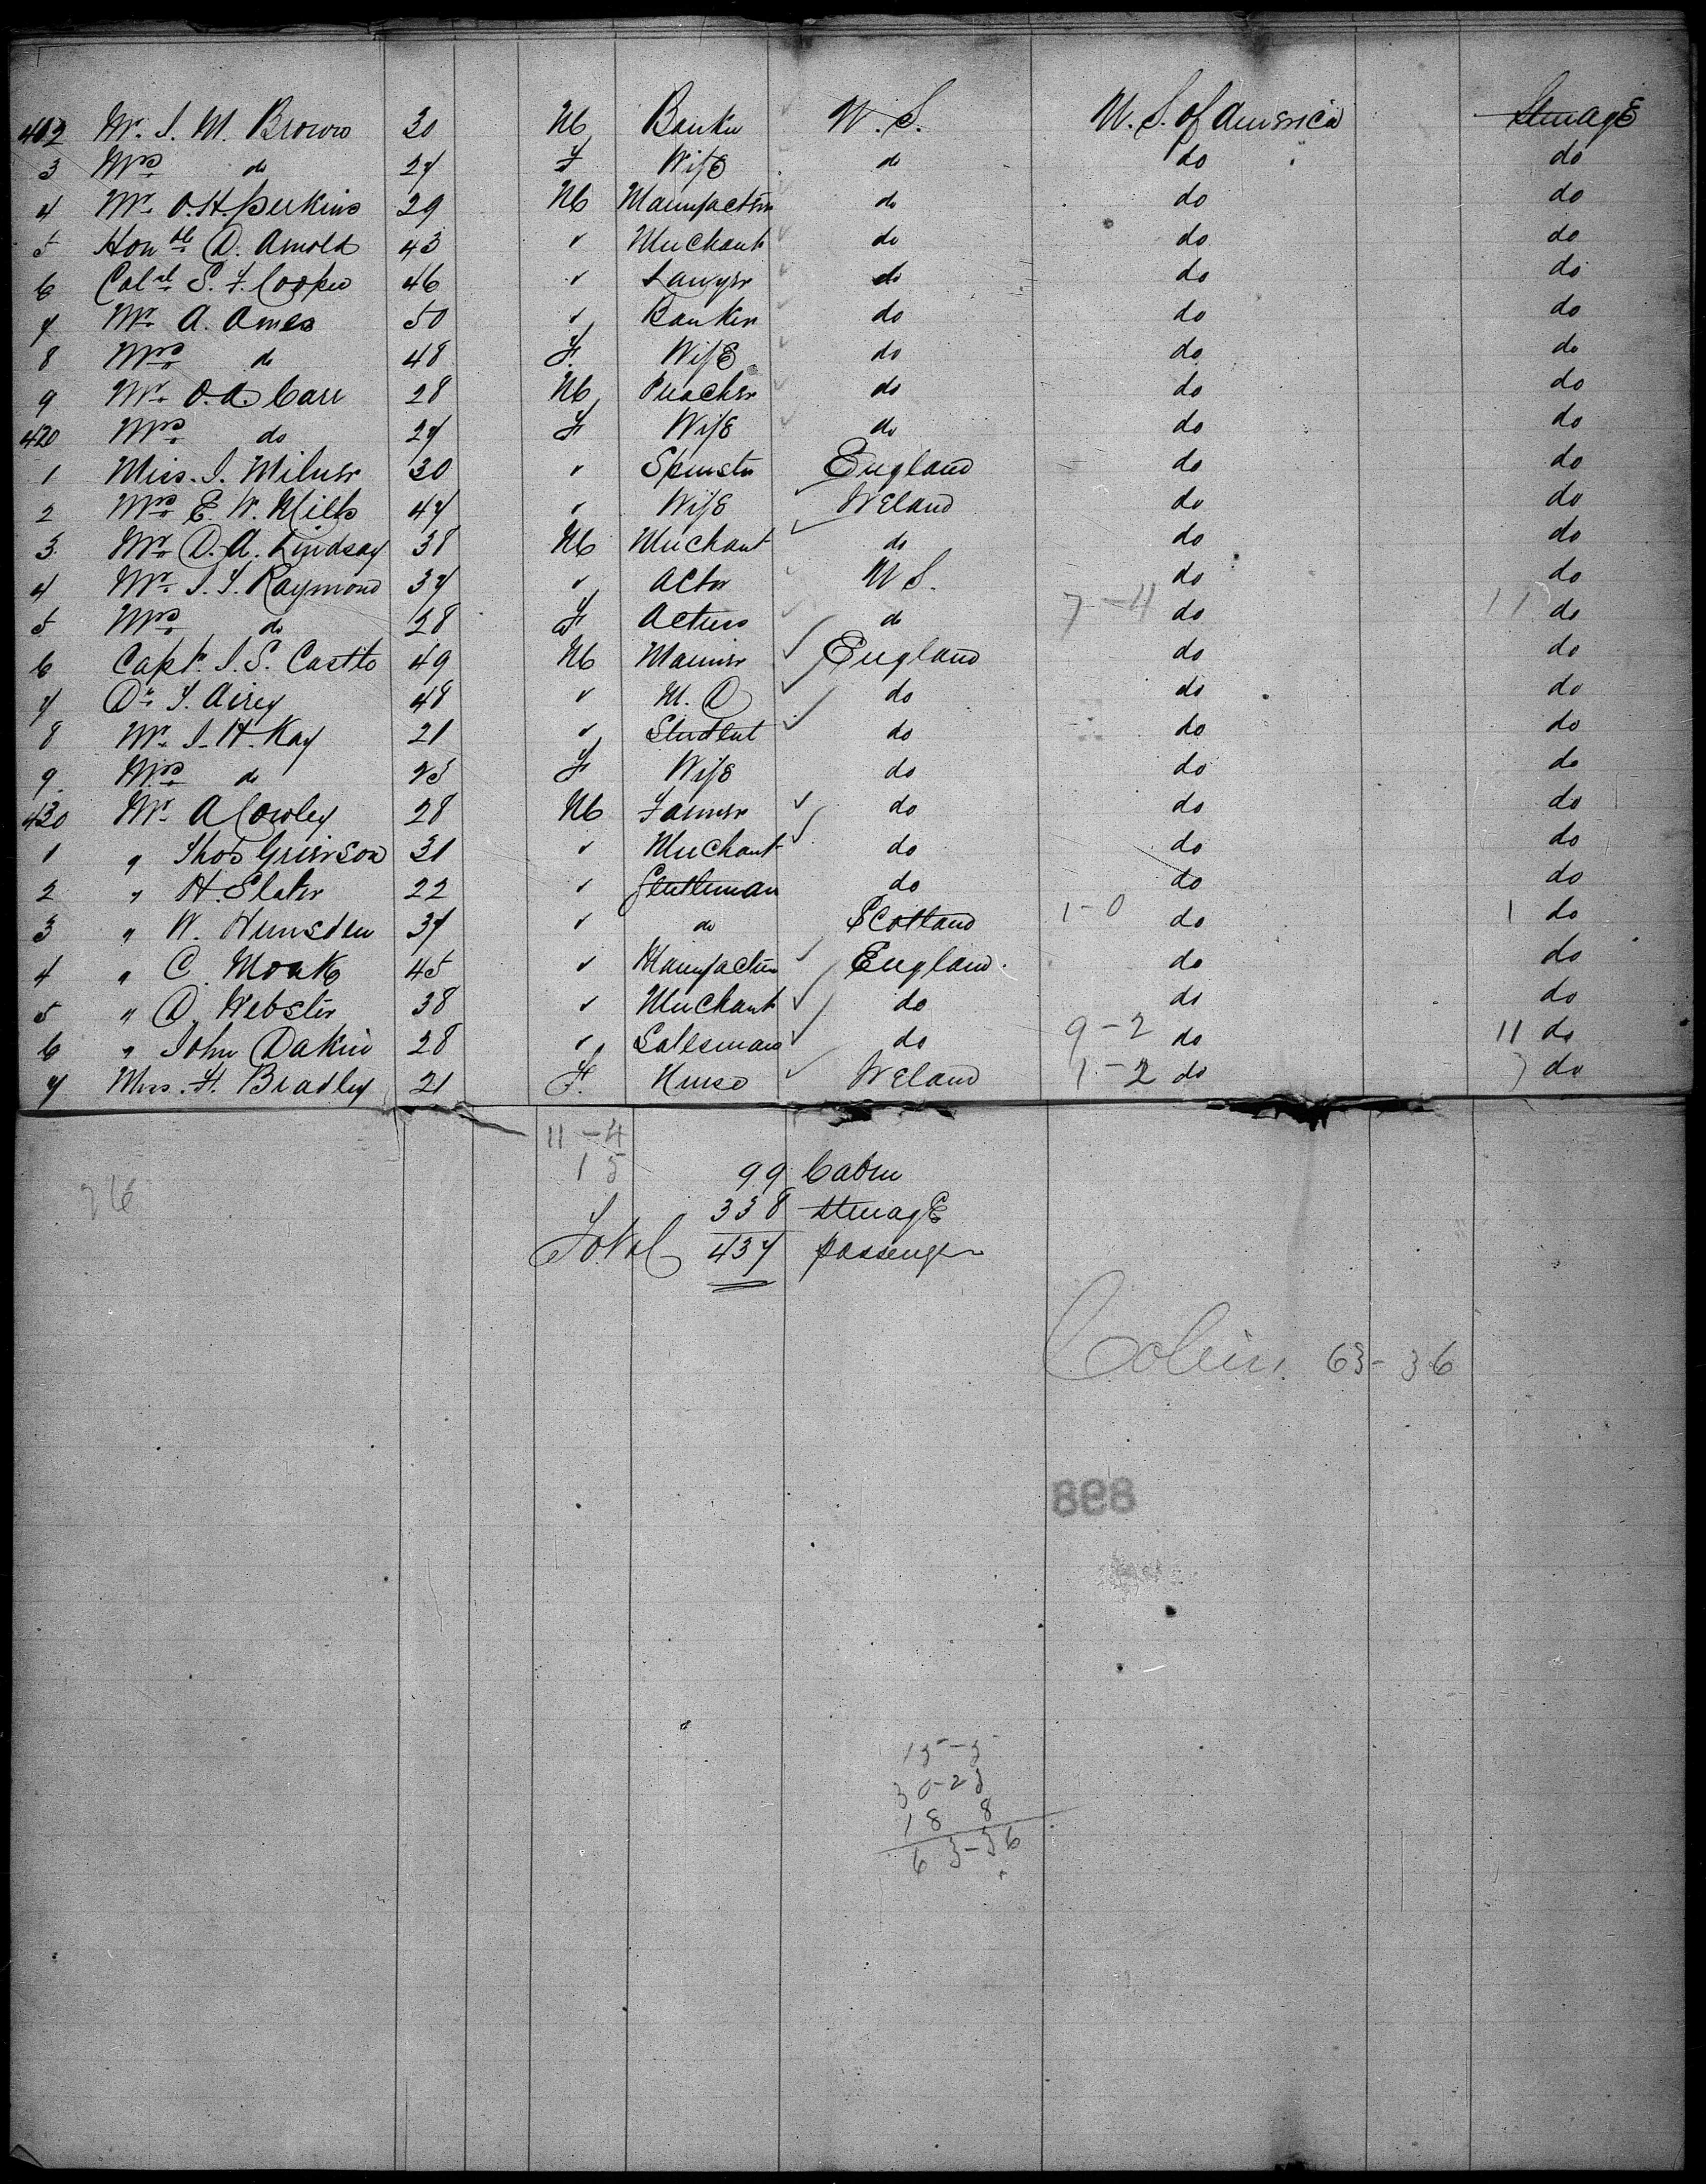 412 Mr. J. M. Brown 30 M Banker U.S. U.S. of America Steerage
3 Mrs do 27 F Wife do do do
4 Mr. O. H. Perkins 29 M Manufacturer do do do
5 Honble D. Arnold 43 " Merchant do do do
6 Colnl S. F. Cooper 46 " Lawyer do do do
7 Mr A. Ames 50 " Banker do do do
8 Mrs do 48 F. Wife do do do
9 Mr O. A. Carr 28 M Preacher do do do
420 Mrs do 27 F Wife do do do
1 Miss. J. Milner 30 " Spinster England do do
2 Mrs E. W. Mills 47 " Wife Ireland do do
3 Mr D. A. Lindsay 38 M Merchant do do do
4 Mr. J. T. Raymond 37 " Actor U S. do do
5 Mrs do 28 F Actress do 7-4 do 11 do
6 Capt. J. S. Castle 49 M Mariner England do do
7 Dr. T. Airey 48 " M. D do do do
8 Mr. J. H. Kay 21 " Student do do do
9 Mrs do 25 F Wife do do do
430 Mr A Cowley 28 M Farmer do do do
1 " Thos Grierson 31 " Merchant do do do
2 " H. Slater 22 " Gentleman do do do
3 " W. Hunsden 37 " do Scotland 1-0 do 1 do
4 " C. Monk 45 " Manufacturer England. do do
5 " D. Webster 38 " Merchant do do do
6 " John Dakin 28 " Salesman do 9-2 do 11 do
7 Miss. H. Bradley 21 F. Nurse Ireland 1-2 do 3 do
11-4
15
99 Cabin
338 Steerage
Total 437 passenger
Cabin 63-36
898
15-5
30-23
18 8
63-36